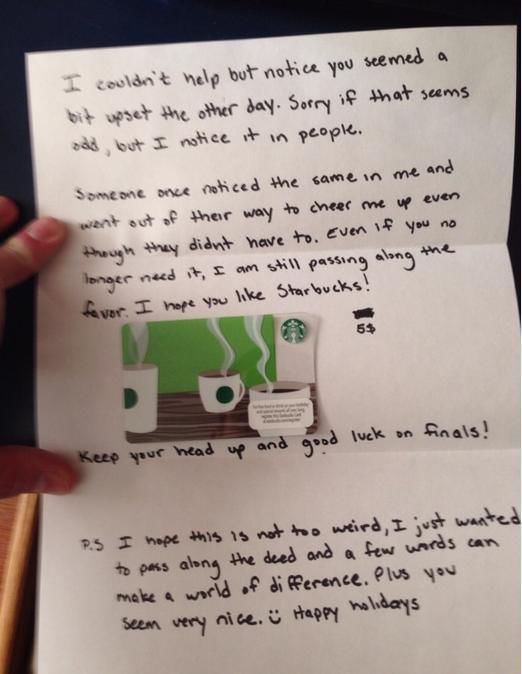 I couldn't help but notice you seemed a
bit upset the other day. Sorry if that seems
odd, but I notice it in people.
Someone once noticed the same in me and
went out of their way to cheer me up even
though they didnt have to. Even if you no
longer need it, I am still passing along the
favor. I hope you like Starbucks!
5$
Keep your head up and good luck on finals!
P.S I hope this is not too weird, I just wanted
to pass along the deed and a few words can
make a world of difference. Plus you
seem very nice. Happy holidays